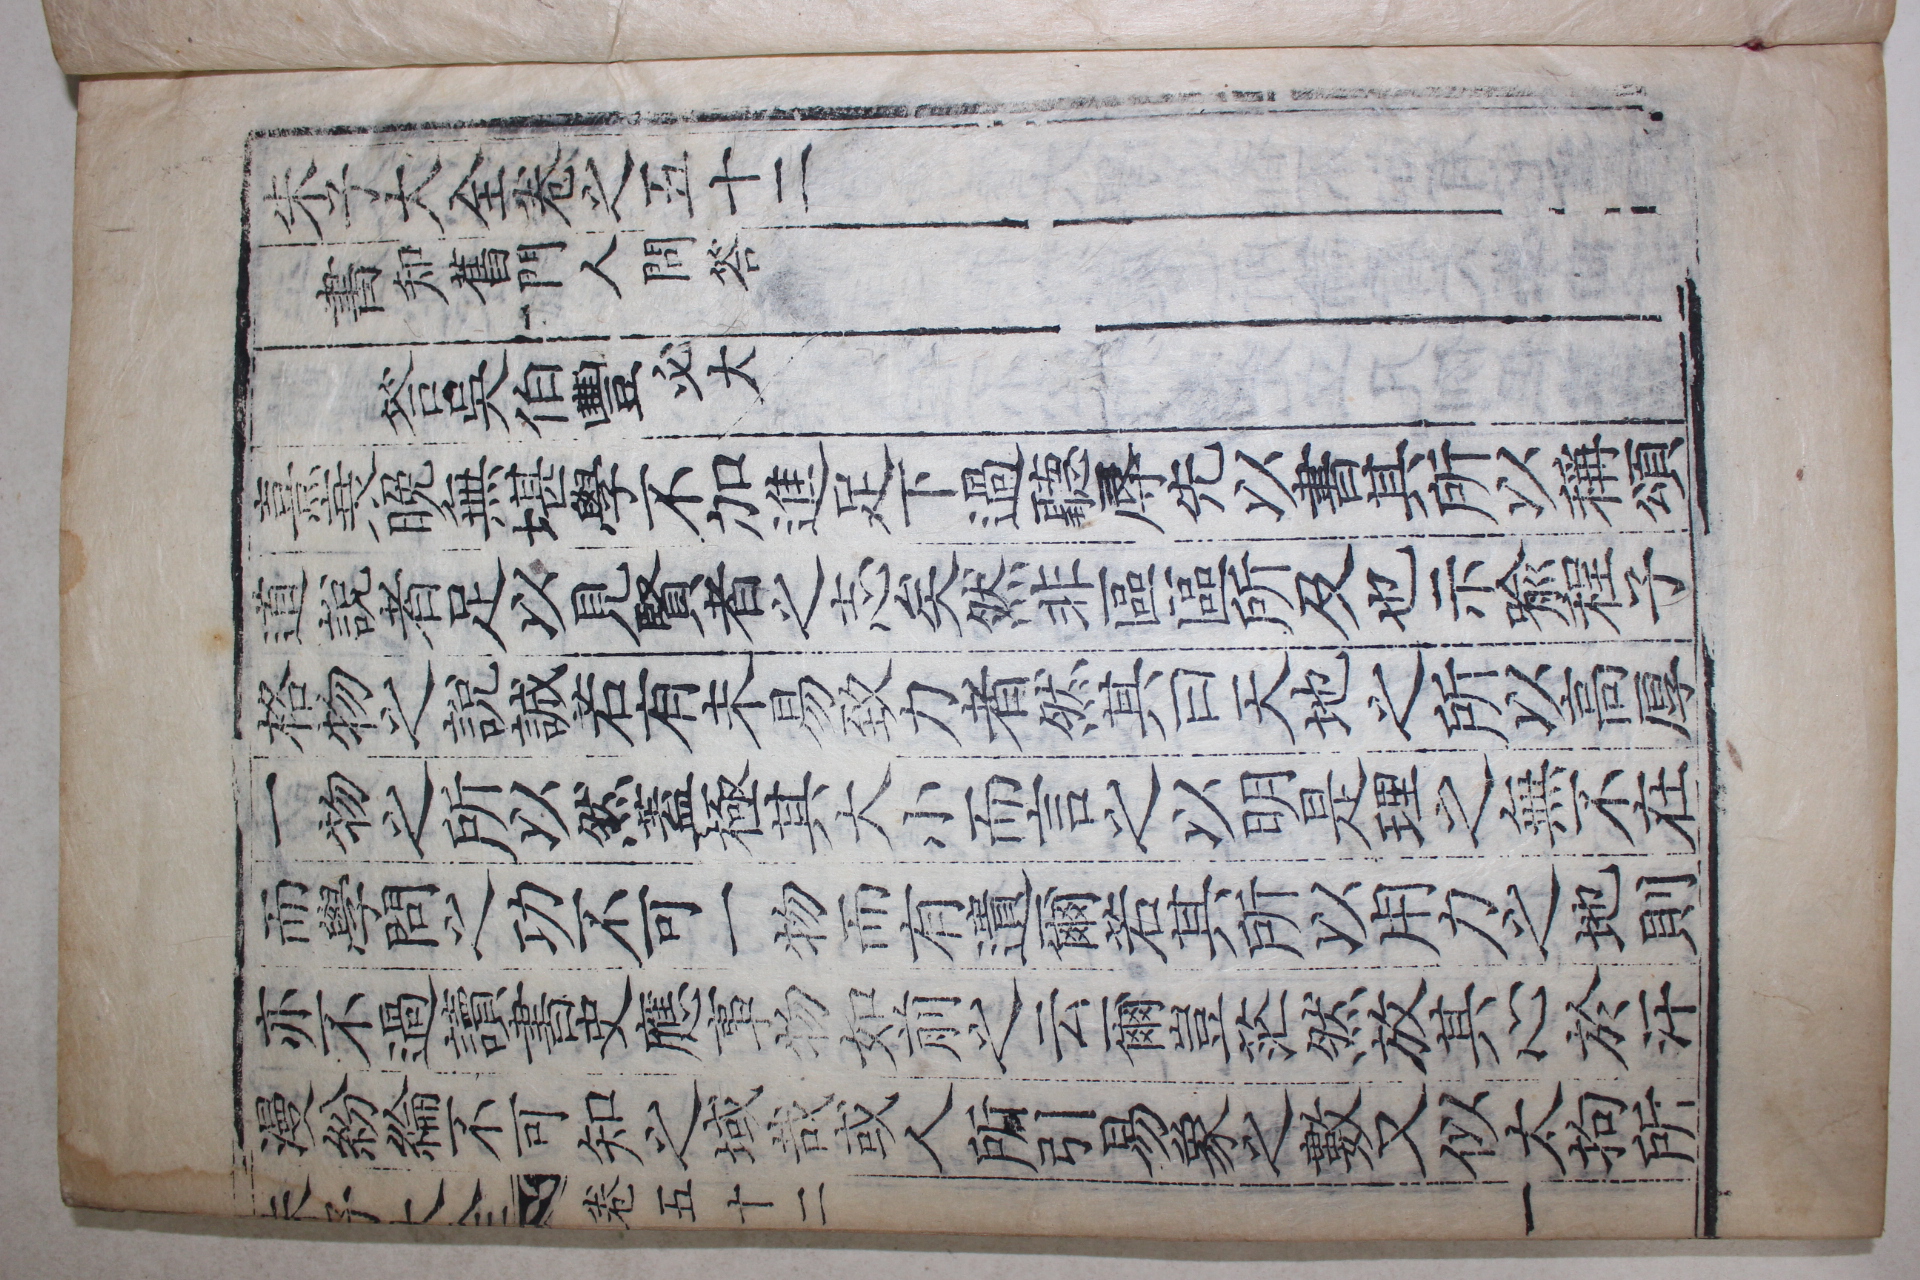 朱子大全卷之五十二
書知舊門人問答
答吳伯豐必大
憙衰晚無堪學不加進足下過聽辱先以書其所以稱頌
道說者足以見賢者之志矣然非區區所及也示喩程子
格物之說誠若有未易致力者然其曰天地之所以高厚
一物之所以然蓋極其大小而言之以明是理之無不在
而學問之功不可一物而有遺爾若其所以用力之地則
亦不過讀書史應事物如前之云爾豈茫然放其心於汗
漫紛綸不可知之域哉或人所引易象之數又似太拘所
朱子大全 卷五十二 一